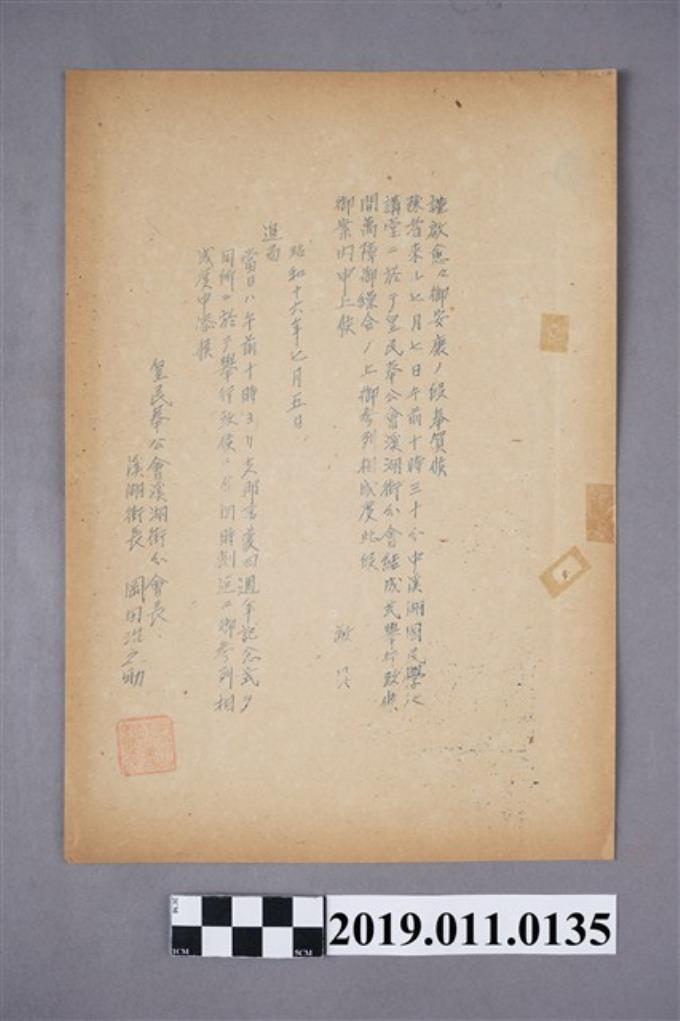 謹啟愈々御安康ノ段奉賀候
陳者来ル七月七日午前十時三十分中溪湖國民學校
講堂ニ於テ皇民奉公會溪湖街分會結成式舉行致候
間萬障御繰合ノ上御參列相成度此段
御案内申上候
敬具
昭和十六年七月五日
追而
當日ハ午前十時ヨリ支那事變四週年記念式ヲ
同所ニ於テ舉行致候ニ付同時刻迄ニ御參列相
成度申添候
皇民奉公會溪湖街分會長
溪湖街長 岡田浩之助
2019.011.0135
1CM
5CM